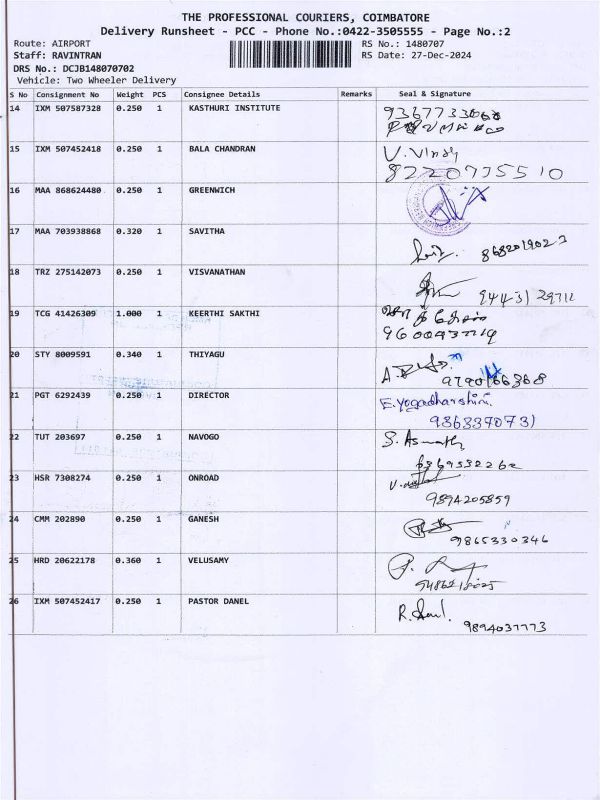 THE PROFESSIONAL COURIERS, COIMBATORE
Delivery Runsheet - PCC - Phone No.:0422-3505555 - Page No.:2
Route: AIRPORT RS No.: 1480707
Staff: RAVINTRAN RS Date: 27-Dec-2024
DRS No.: DCJB148070702
Vehicle: Two Wheeler Delivery
S No Consignment No Weight PCS Consignee Details Remarks Seal & Signature
14 IXM 507587328 0.250 1 KASTHURI INSTITUTE
15 IXM 507452418 0.250 1 BALA CHANDRAN
8220735510
16 MAA 868624480 0.250 1 GREENWICH
17 MAA 703938868 0.320 1 SAVITHA
8682019023
18 TRZ 275142073 0.250 1 VISVANATHAN
19 TCG 41426309 1.000 1 KEERTHI SAKTHI
20 STY 8009591 0.340 1 THIYAGU
21 PGT 6292439 0.250 1 DIRECTOR E.Yogadharshini
9863370731
22 TUT 203697 0.250 1 NAVOGO S. Asmath
6369532262
23 HSR 7308274 0.250 1 ONROAD
9894205859
24 CMM 202890 0.250 1 GANESH
9865330346
25 HRD 20622178 0.360 1 VELUSAMY
26 IXM 507452417 0.250 1 PASTOR DANEL
9894037773